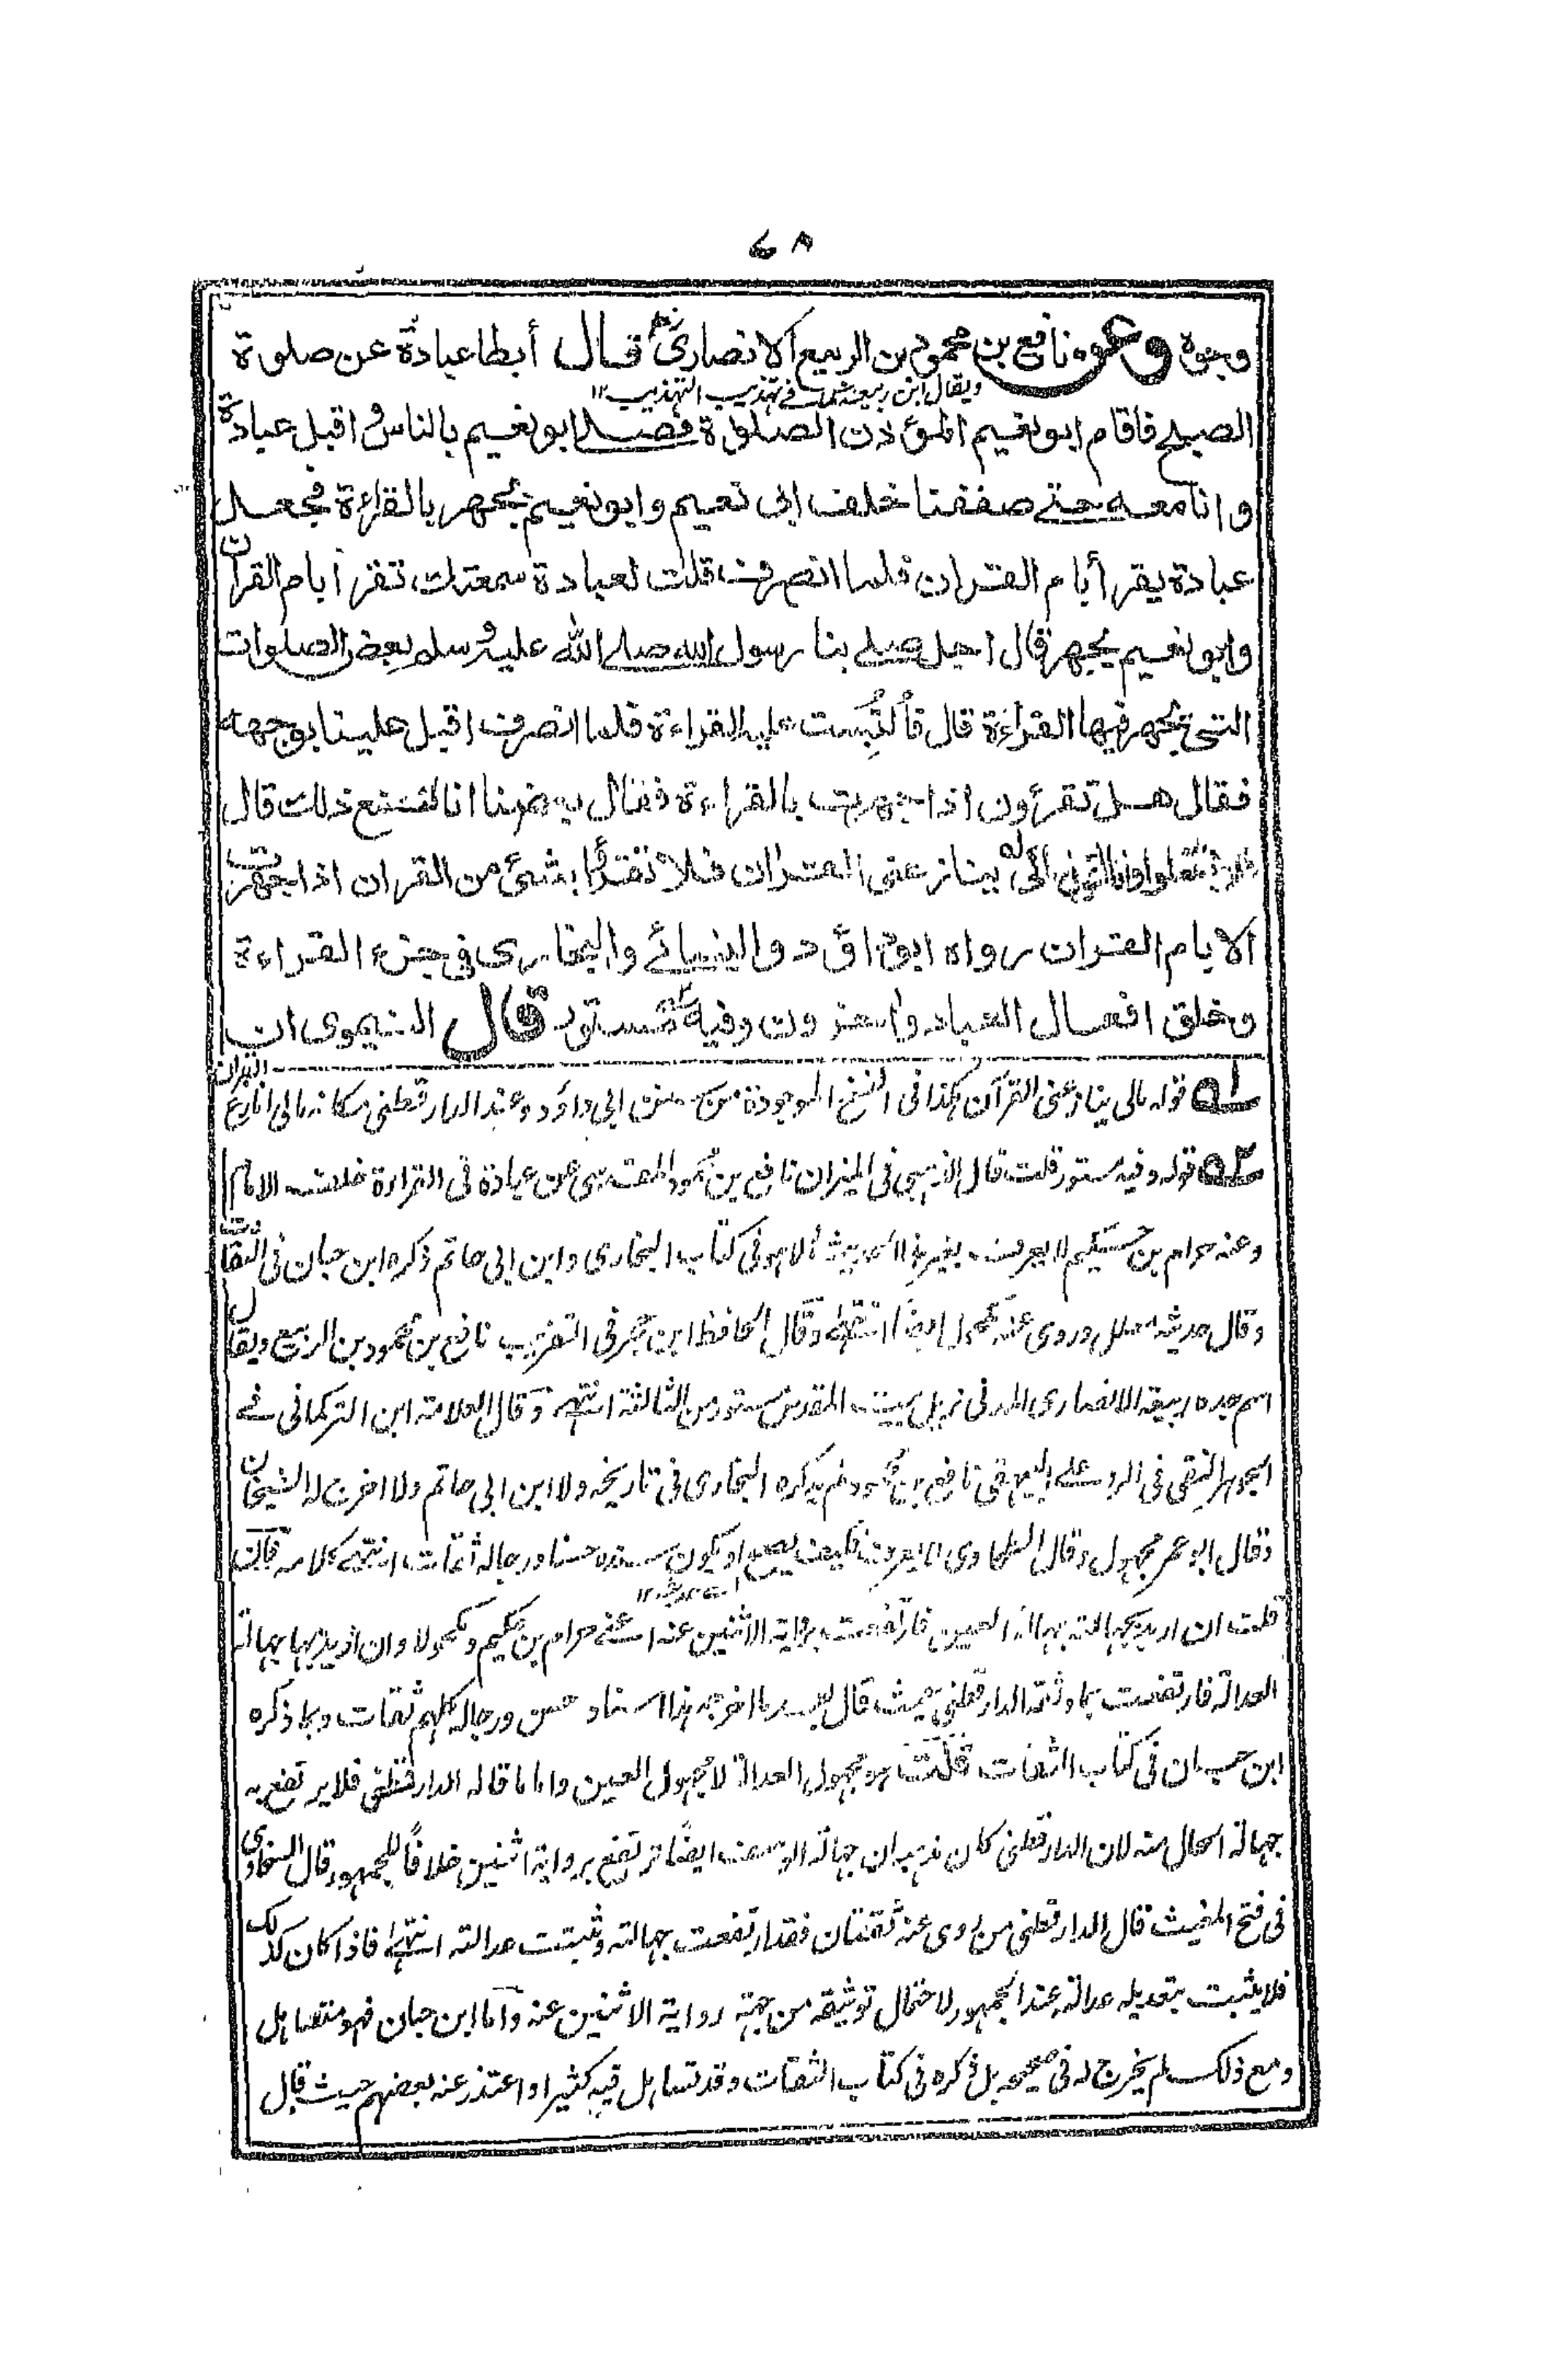 ٧٨
وجوه وعن نافع بن محمود بن الربيع الانصاري قال أبطا عبادة عن صلوة
ويقال ابن ربيعة في تهذيب التهذيب ١٢
الصبح فاقام ابو نعيم المؤذن الصلوة فصلى ابو نعيم بالناس واقبل عبادة
وانا معه حتى صففنا خلف ابى نعيم وابو نعيم يجهر بالقراءة فجعل
عبادة يقرأ بام القران فلما انصرف قلت لعبادة سمعتك تقرأ بام القرآن
وابو نعيم يجهر قال اجل صلى بنا رسول الله صلى الله عليه وسلم بعض الصلوات
التى يجهر فيها القراءة قال فالتبست عليه القراءة فلما انصرف اقبل علينا بوجهه
فقال هل تقرأون اذا جهرت بالقراءة فقال بعضنا انا لنصنع ذلك قال
فلا تفعلوا وانا اقول مالى ينازعنى القران فلا تقرأوا بشئ من القران اذا جهرت
الا بام القران رواه ابوداؤد والنسائى والبخارى فى جزء القراءة
وخلق افعال العباد واخرون وفيه مستور قال النيموى ان
له قوله مالى ينازعنى القرآن هكذا فى النسخ الموجودة من سنن ابى داؤد وعند الدارقطنى مكانه مالى انازع القران
٢ه قوله وفيه مستور قلت قال الذهبى فى الميزان نافع بن محمود المقدسى عن عبادة فى القراءة خلف الامام
وعنه حرام بن حكيم لا يعرف بغير هذا الحديث ولا هو فى كتاب البخارى وابن ابى حاتم ذكره ابن حبان فى الثقات
وقال حديثه معلل وروى عنه مكحول ايضا انتهى وقال الحافظ ابن حجر فى التقريب نافع بن محمود بن الربيع ويقال
اسم جده ربيعة الانصارى المدنى نزيل بيت المقدس مستور من الثالثة انتهى وقال العلامة ابن التركمانى فى
الجوهر النقى فى الرد على البيهقى نافع بن محمود لم يذكره البخارى فى تاريخه ولا ابن ابى حاتم ولا اخرج له الشيخان
وقال ابو عمر مجهول وقال الطحاوى لا يعرف فكيف يصح او يكون سنده حسنا ورجاله ثقات انتهى كلامه فان
قلت ان اريد بجهالته جهالة العين فارتفعت برواية الاثنين عنه اعنى حرام بن حكيم ومكحولا وان اريد بها جهالة
العدالة فارتفعت بما وثقه الدارقطنى حيث قال بعد ما اخرجه هذا اسناد حسن ورجاله كلهم ثقات وبما ذكره
ابن حبان فى كتاب الثقات قلت هو مجهول العدالة لا مجهول العين واما ما قاله الدارقطنى فلا يرتفع به
جهالة الحال منه لان الدارقطنى كان مذهبه ان جهالة الوصف ايضًا ترتفع برواية اثنين خلافًا للجمهور قال السخاوى
فى فتح المغيث قال الدارقطنى من روى عنه ثقتان فقد ارتفعت جهالته وثبتت عدالته انتهى فاذا كان كذلك
فلا يثبت بتعديله عدالته عند الجمهور لاحتمال توثيقه من جهة رواية الاثنين عنه واما ابن حبان فهو متساهل
ومع ذلك لم يخرج له فى صحيحه بل ذكره فى كتاب الثقات وقد تساهل فيه كثيرا واعتذر عنه بعضهم حيث قال